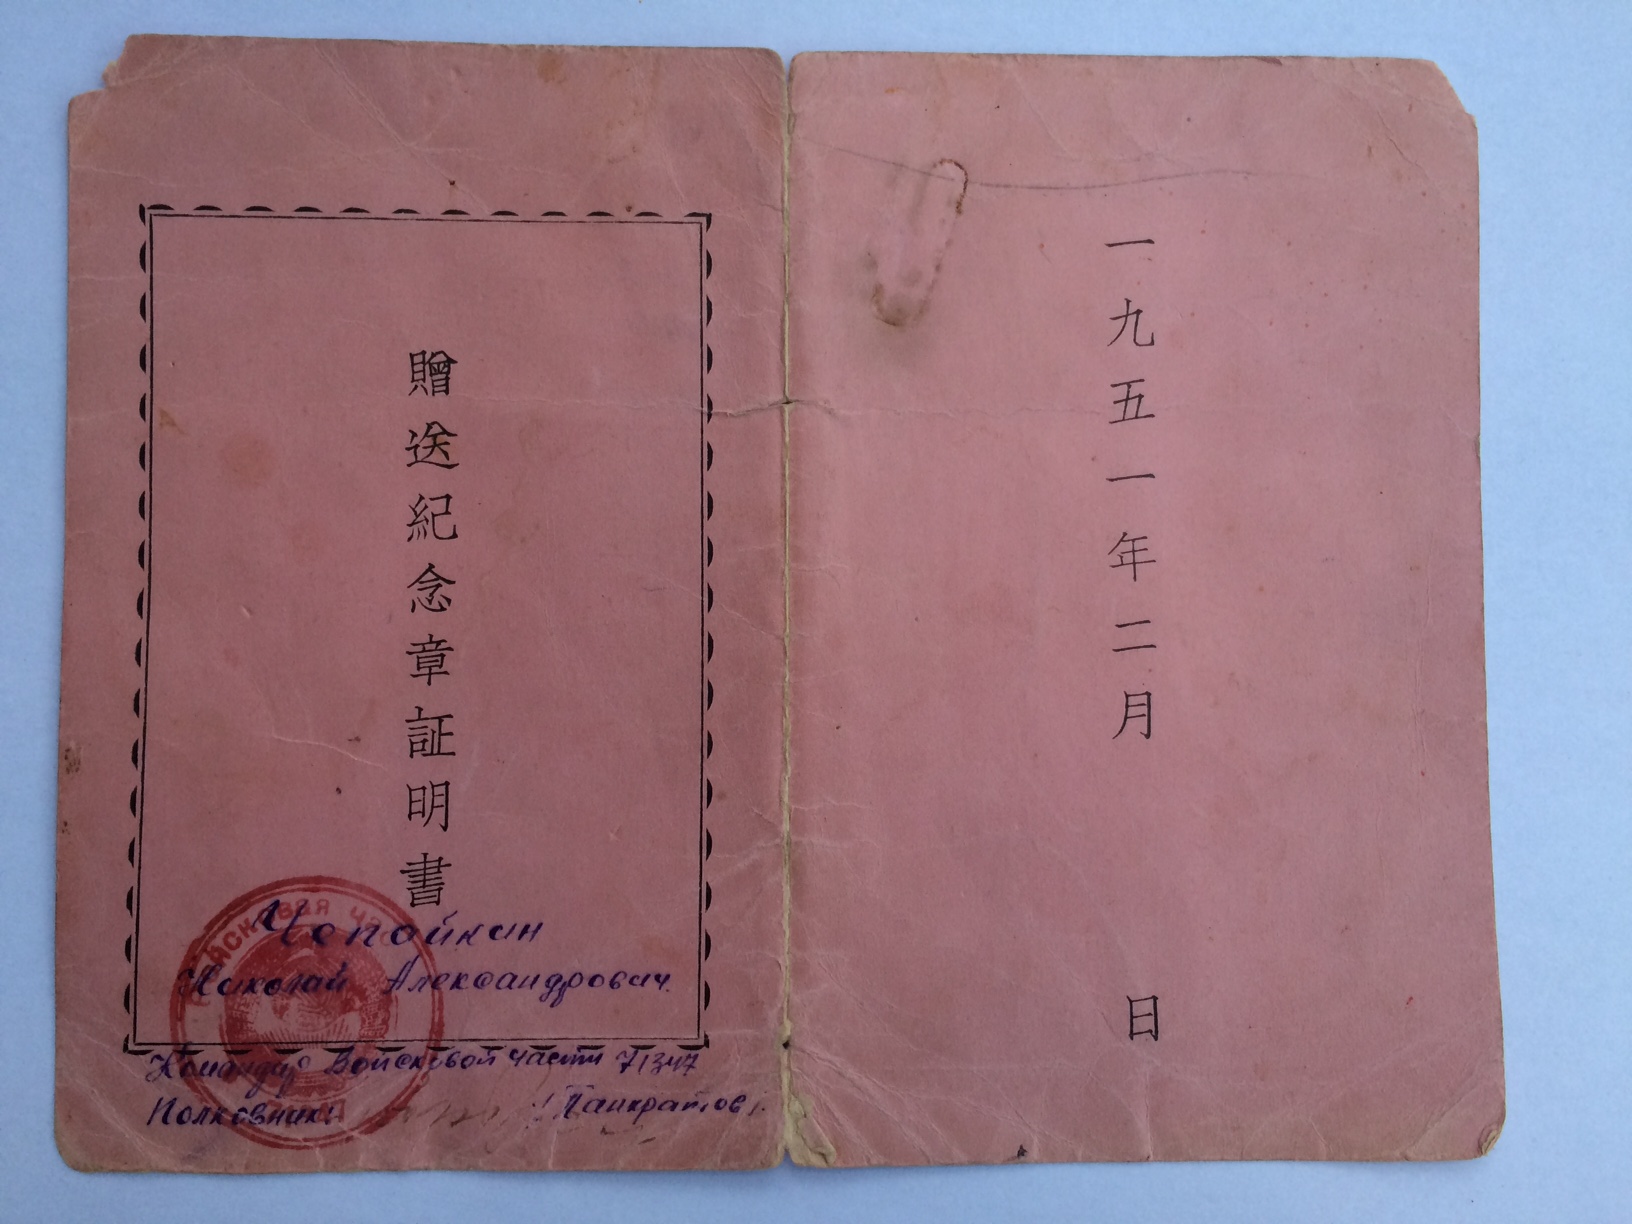 贈送紀念章証明書
Войсковая час
Чепайкин
Николай Александрович.
Командир Войсковой части 71347
Полковник
/Панкратов/.
一九五一年二月
日